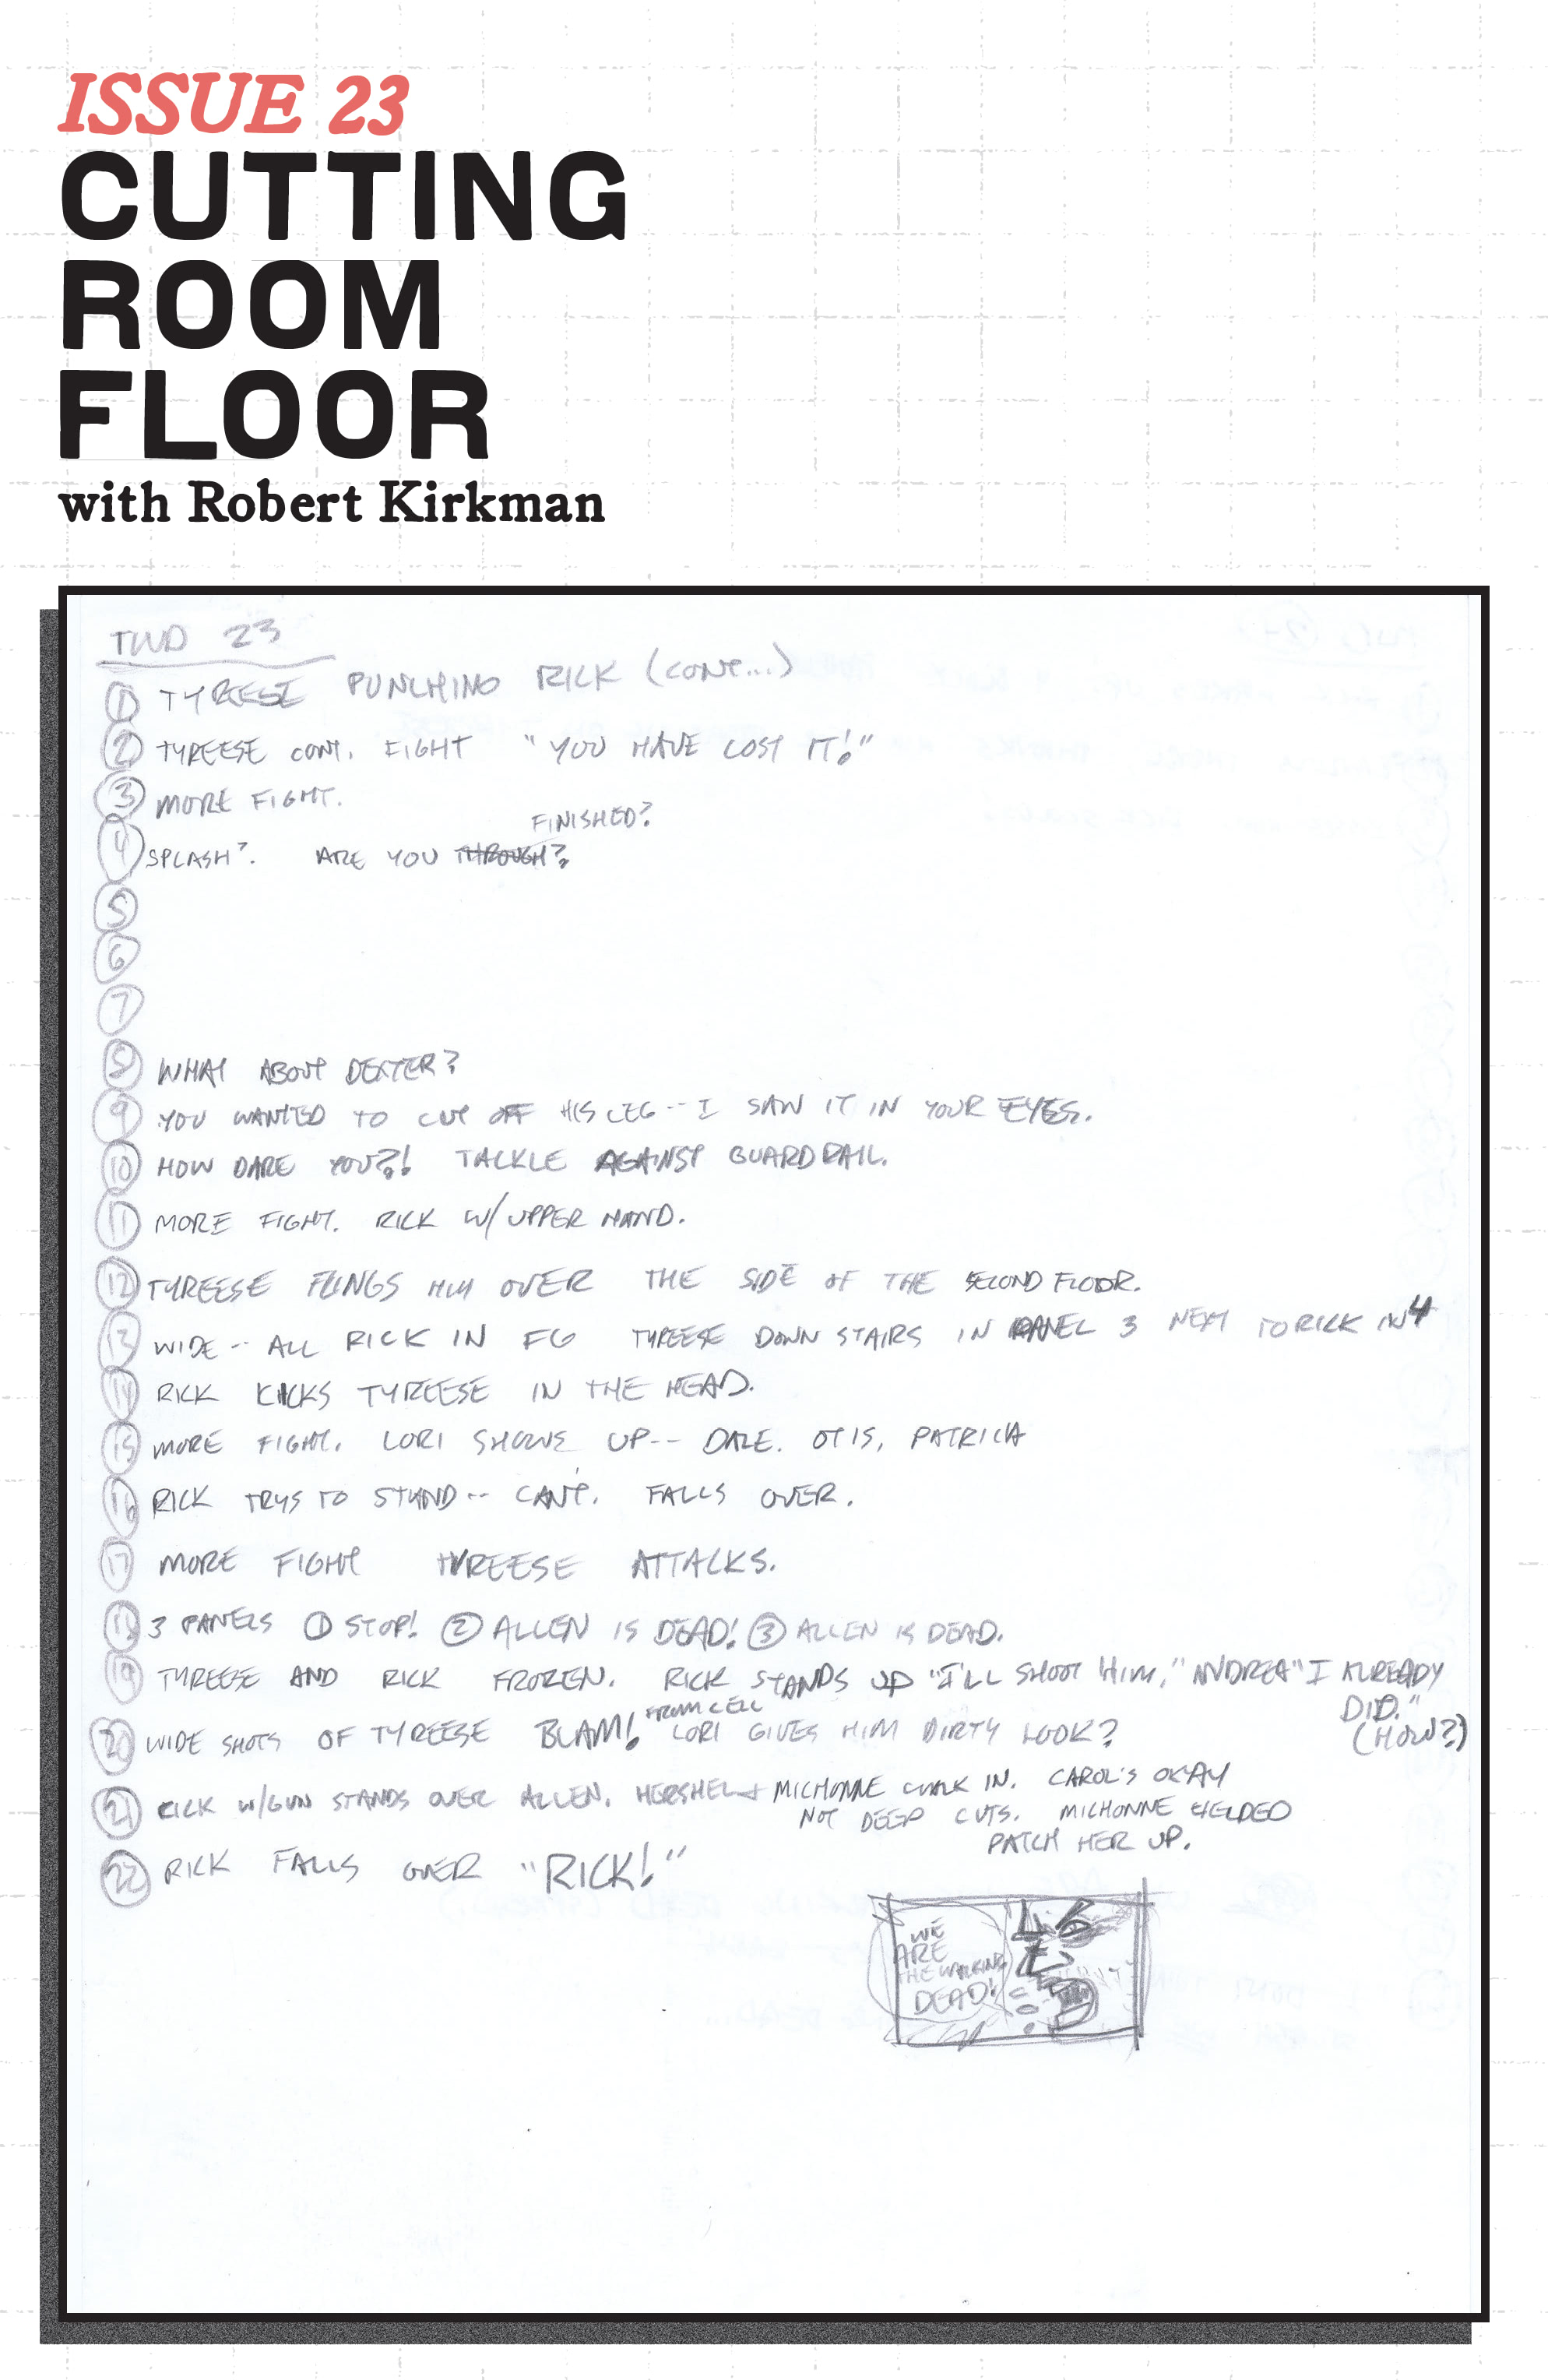 ISSUE 23
CUTTING
ROOM
FLOOR
with Robert Kirkman
TWD 23
1 TYREESE PUNCHING RICK (CONT...)
2 TYREESE CONT. FIGHT "YOU HAVE LOST IT!"
3 MORE FIGHT.
FINISHED?
4 SPLASH? ARE YOU THROUGH?
5
6
7
8 WHAT ABOUT DEXTER?
9 YOU WANTED TO CUT OFF HIS LEG -- I SAW IT IN YOUR EYES.
10 HOW DARE YOU?! TACKLE AGAINST GUARDRAIL.
11 MORE FIGHT. RICK W/ UPPER HAND.
12 TYREESE FLINGS HIM OVER THE SIDE OF THE SECOND FLOOR.
13 WIDE -- ALL RICK IN FG TYREESE DOWN STAIRS IN PANEL 3 NEXT TO RICK IN 4
14 RICK KICKS TYREESE IN THE HEAD.
15 MORE FIGHT. LORI SHOWS UP -- DALE. OTIS, PATRICIA
16 RICK TRYS TO STAND -- CAN'T. FALLS OVER.
17 MORE FIGHT TYREESE ATTACKS.
18 3 PANELS 1 STOP! 2 ALLEN IS DEAD! 3 ALLEN IS DEAD.
19 TYREESE AND RICK FROZEN. RICK STANDS UP "I'LL SHOOT HIM," ANDREA "I ALREADY
DID."
(HOW?)
FROM CELL
20 WIDE SHOTS OF TYREESE BLAM! LORI GIVES HIM DIRTY LOOK?
21 RICK W/GUN STANDS OVER ALLEN. HERSHEL + MICHONNE WALK IN. CAROL'S OKAY
NOT DEEP CUTS. MICHONNE HELPED
PATCH HER UP.
22 RICK FALLS OVER "RICK!"
WE
ARE
THE WALKING
DEAD!